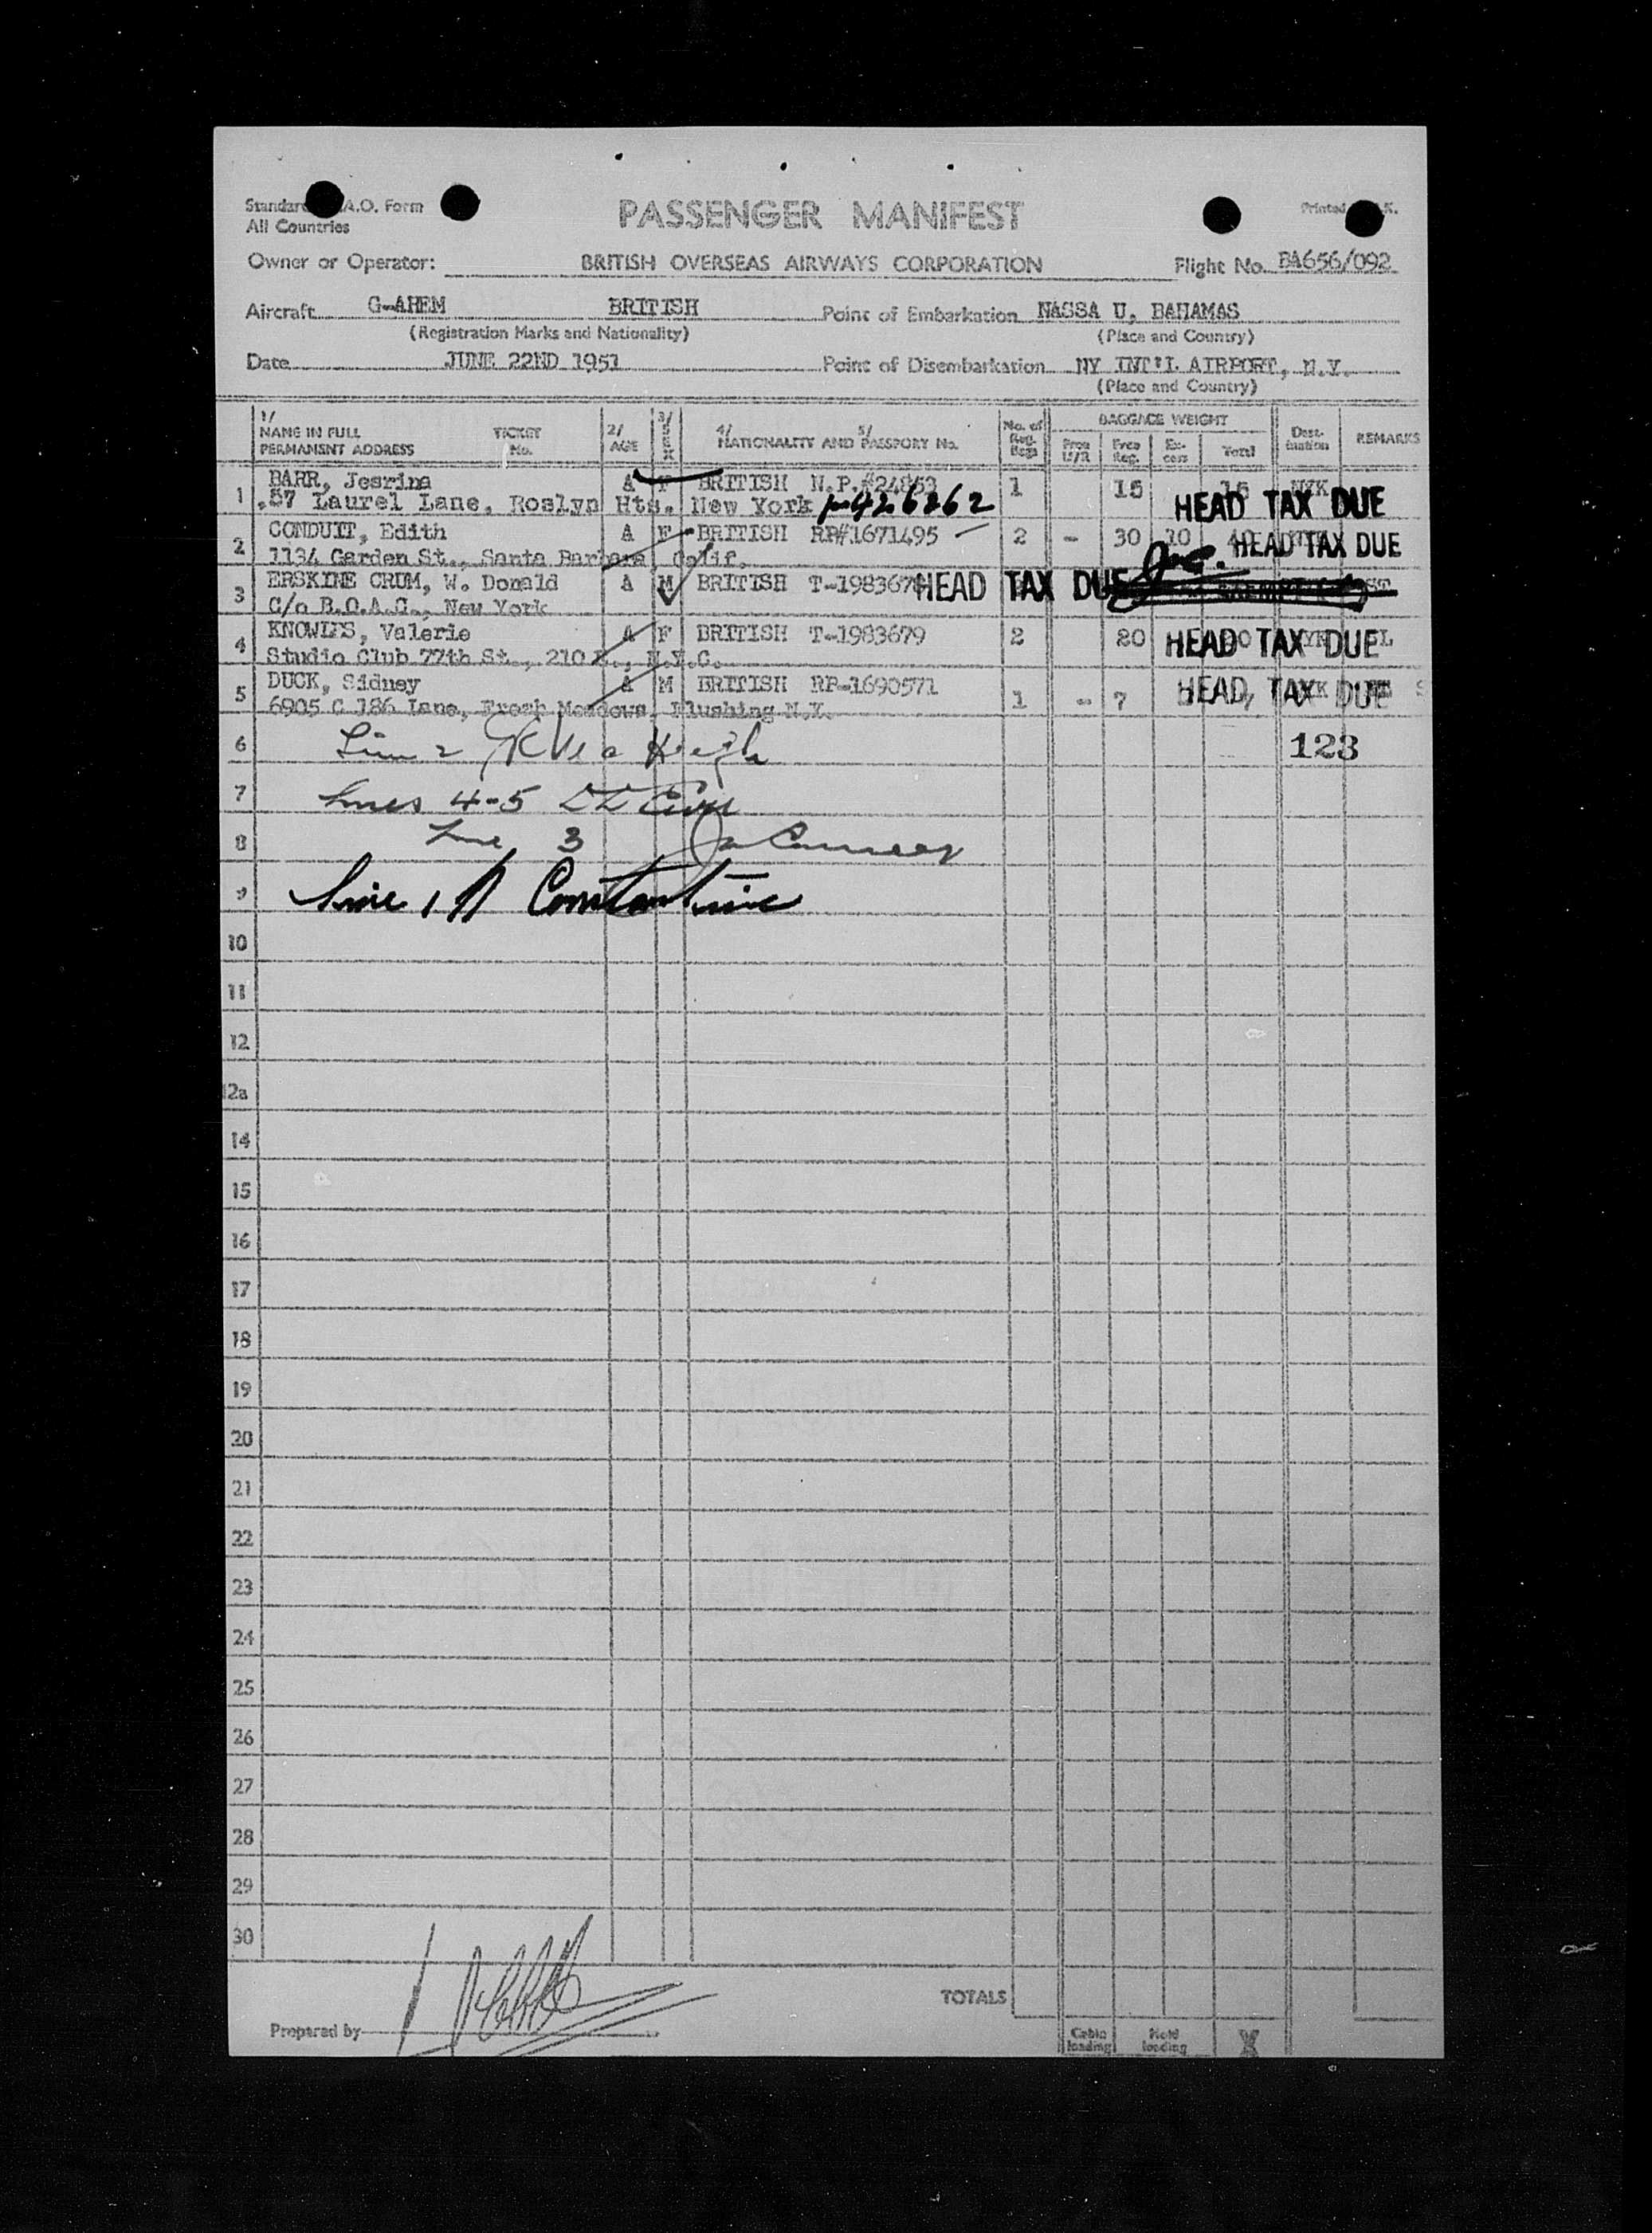 PASSENGER MANIFEST
All Countries
Owner or Operator: BRITISH OVERSEAS AIRWAYS CORPORATION Flight No. BA656/092
Aircraft G-AHEM BRITISH Point of Embarkation NASSA U, BAHAMAS
(Registration Marks and Nationality) (Place and Country)
Date JUNE 22ND 1951 Point of Disembarkation NY INT'L AIRPORT, N.Y.
(Place and Country)
1/ NAME IN FULL TICKET No. 2/ AGE 3/ SEX 4/ 5/ NATIONALITY AND PASSPORT No. No. of Reg. Bags BAGGAGE WEIGHT Free Reg. Ex- cess Total Dest- ination REMARKS
PERMANENT ADDRESS
1 BARR, Jesrina A F BRITISH N.P.#24853 1 15 15 NYK HEAD TAX DUE
.57 Laurel Lane, Roslyn Hts. New York
2 CONDUIT, Edith A F BRITISH RP#1671495 2 - 30 10 40 HEAD TAX DUE
1134 Garden St., Santa Barbara, Calif.
3 ERSKINE CRUM, W. Donald A M BRITISH HEAD TAX DUE
C/o B.O.A.C., New York
4 KNOWLES, Valerie A F BRITISH T-1983679 2 20 HEAD TAX DUE
Studio Club 77th St., 210 E., N.Y.C.
5 DUCK, Sidney A M BRITISH RP-1690571 1 - 7 HEAD TAX DUE
6905 C 186 Lane, Fresh Meadows, Flushing N.Y.
6 123
7 Lines 4-5
8 Line 3
9 Line 1 Constantine
10
11
12
12a
14
15
16
17
18
19
20
21
22
23
24
25
26
27
28
29
30
TOTALS
Prepared by
Cabin loading Hold loading